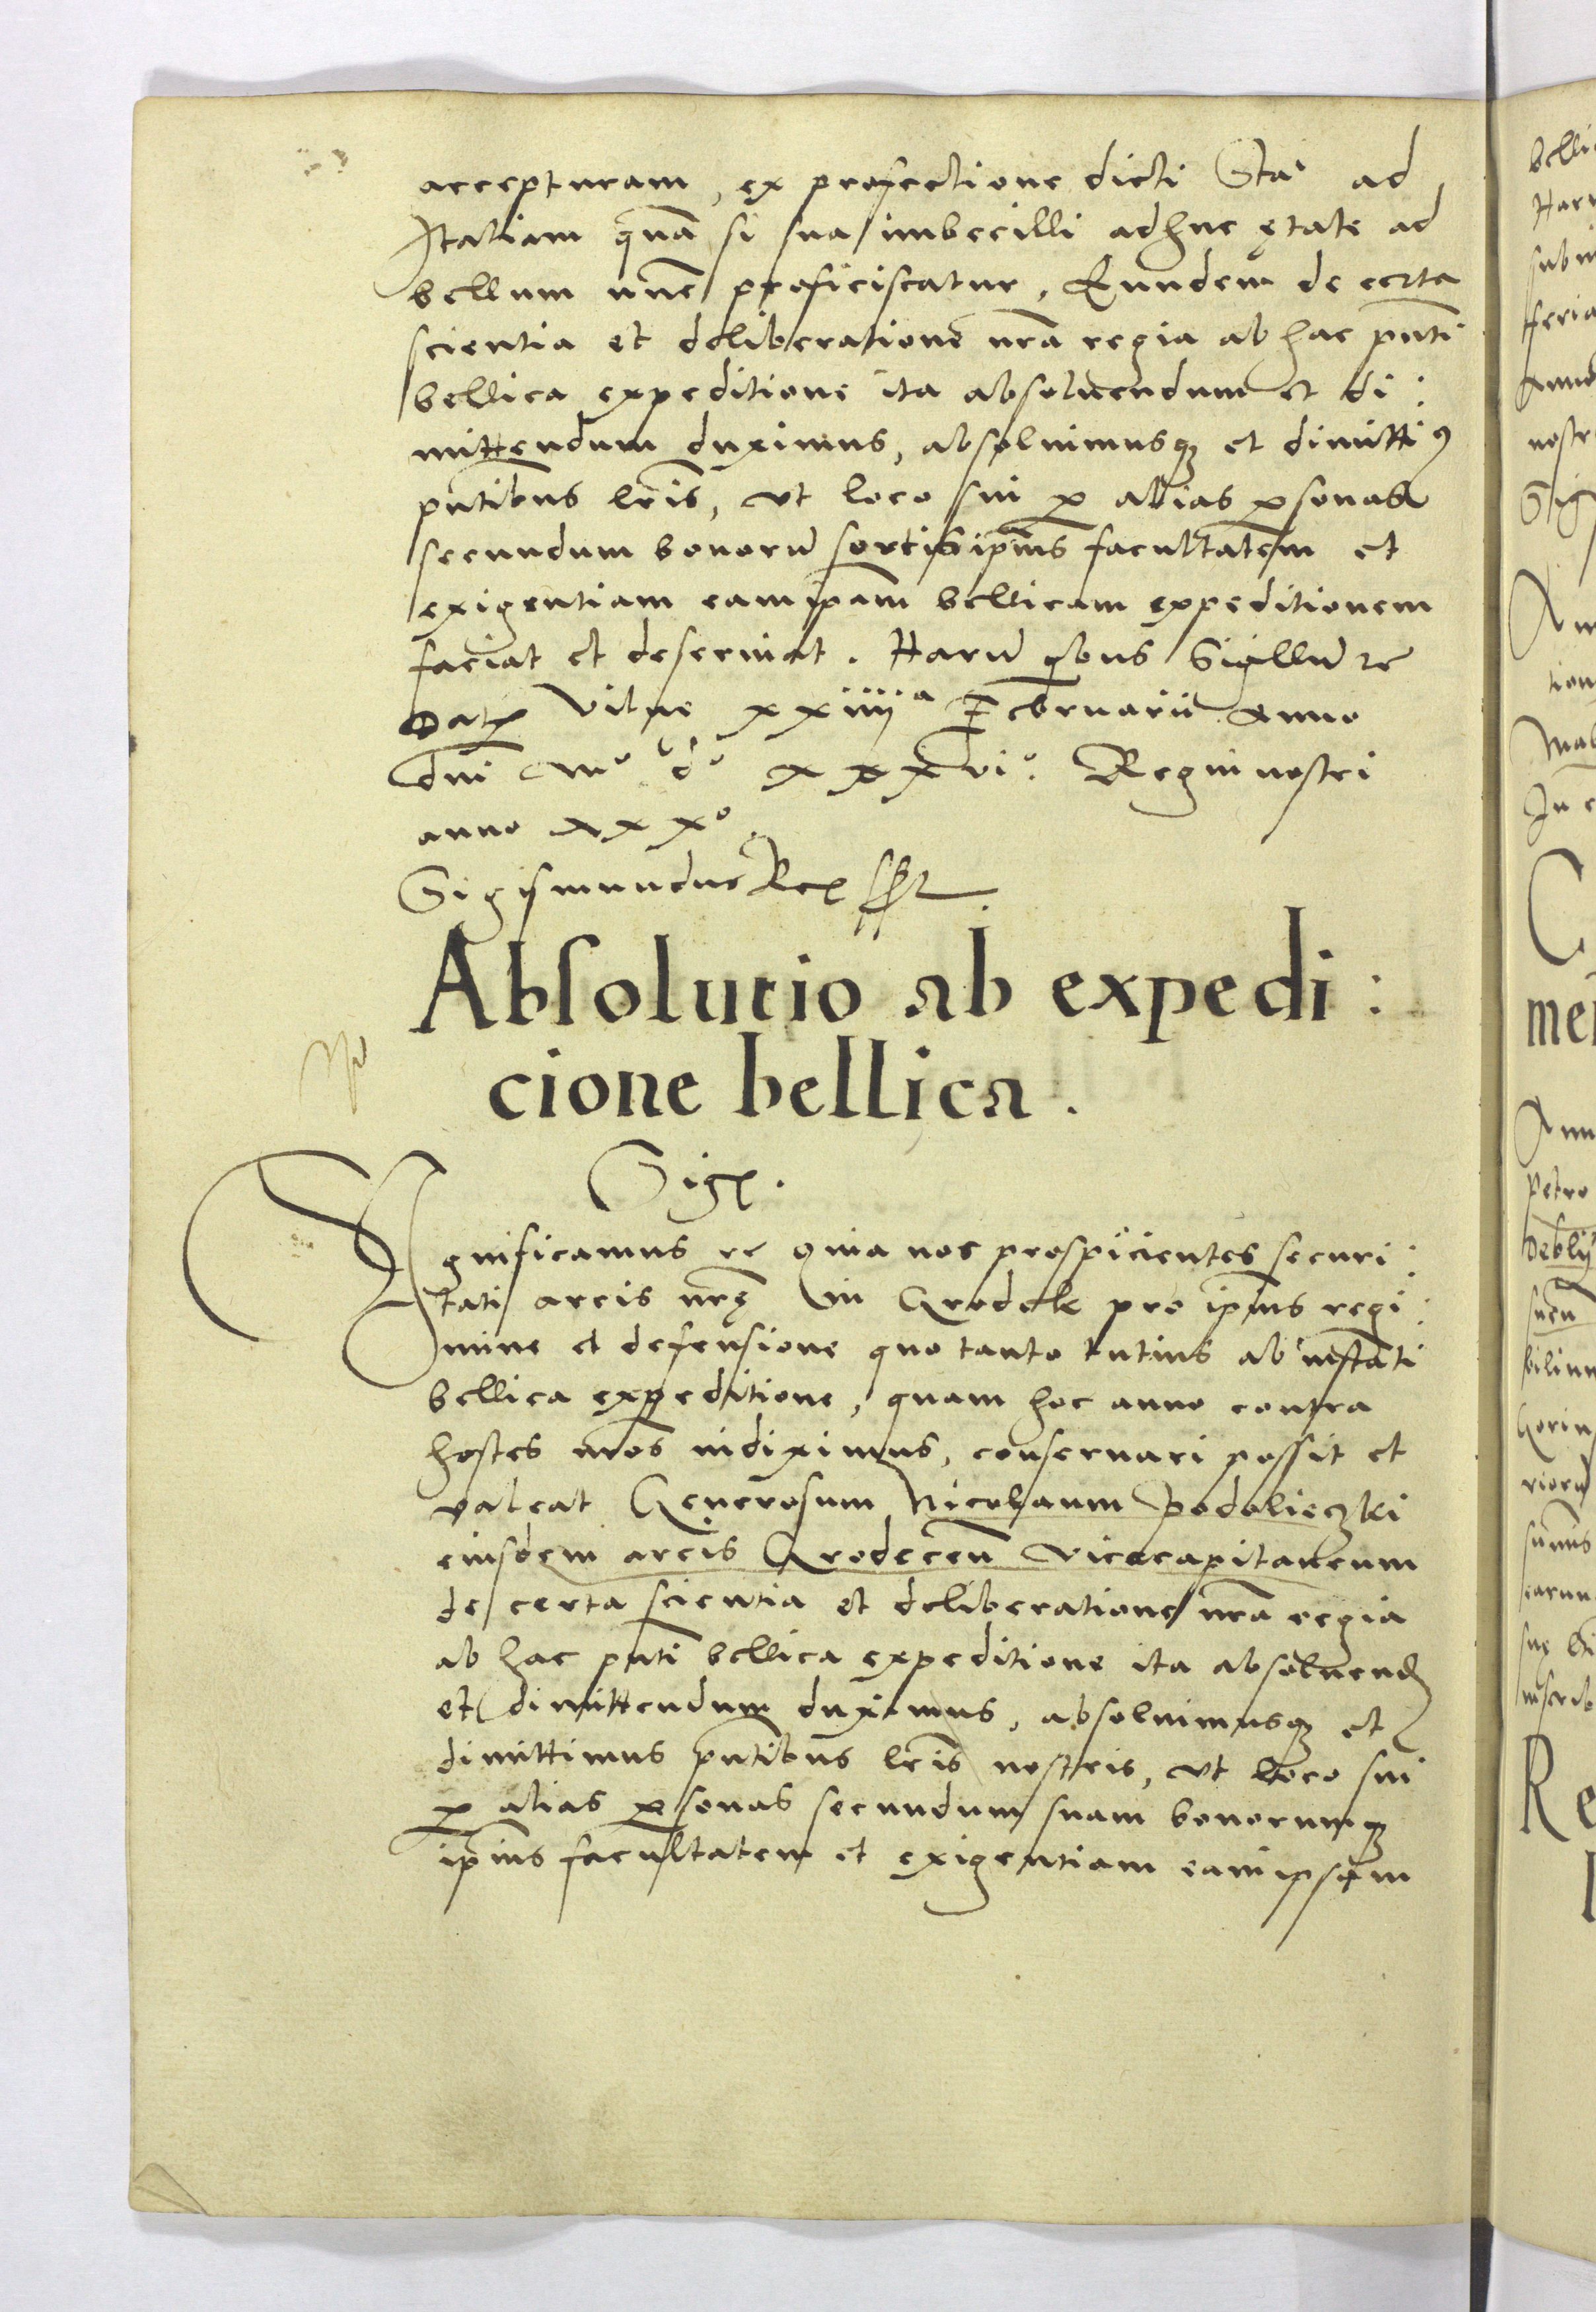 accepturam, ex profectione dicti Sta. ad
Italiam quā si sua imbecilli adhuc ętate ad
bellum nūc proficiscatur, Eundem de certa
scientia et deliberatione nrā regia ab hac pn̄ti
bellica expeditione ita absoluendum et di:
mittendum duximus, absoluimusqȝ et dimittiꝰ
pn̄tibus lrīs, vt loco sui ꝑ alias ꝑsonas
secundum bonorū sortis ip̄ius facultatem et
exigentiam eam ip̄am bellicam expeditionem
faciat et deseruiat. Harū qb̄us Sigillū rc̄
Datꝭ Vilne xxiiijᵃ Februarii Anno
dn̄i Mº dº xxxviº. Regni nostri
anno xxxº.
Sigismundus Rex sst.
Absolutio ab expedi:
cione bellica.
Sigꝭ.
Significamus rc̄ quia nos prospicientes securi:
tati arcis nrę̄ in Grodek pro ip̄ius regi:
mine et defensione quo tanto tutius ab instāti
bellica expeditione, quam hoc anno contra
hostes nr̄os indiximus, conseruari possit et
valeat Generosum Nicolaum Podolieczki
eiusdem arcis Grodecen̄ vicecapitaneum
de certa scientia et deliberatione nrā regia
ab hac pn̄ti bellica expeditione ita absoluend
et dimittendum duximus, absoluimusqȝ et
dimittimus pn̄tibus lrīs nostris, vt loco sui
ꝑ alias ꝑsonas secundum suam bonorumqȝ
ip̄ius facultatem et exigentiam eam ipsam